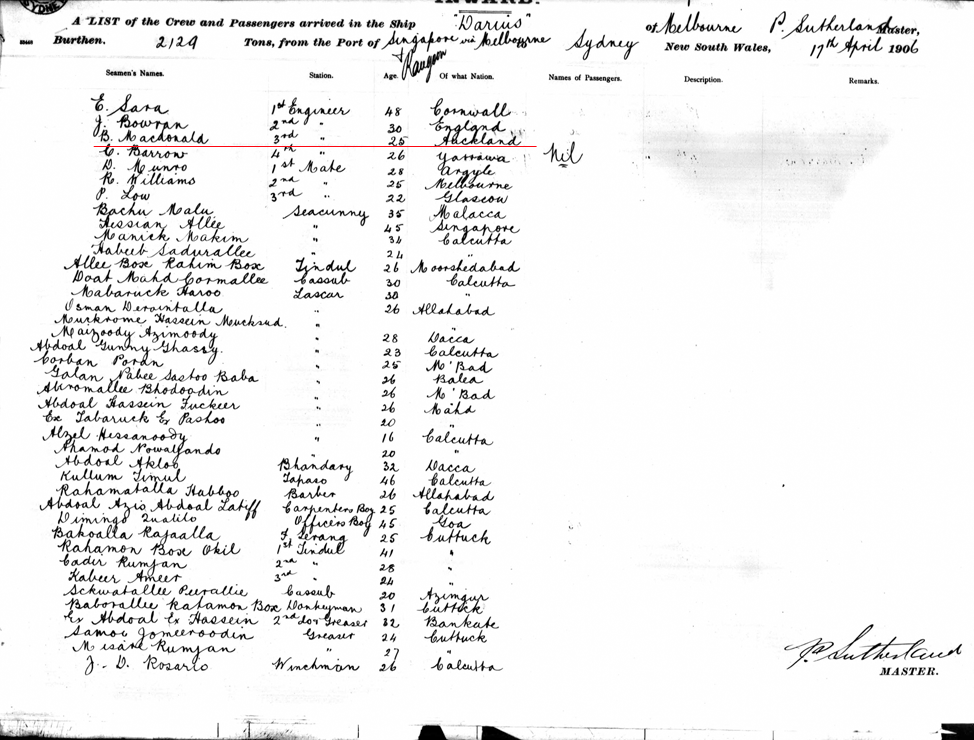 SYDNEY
INWARD.
A LIST of the Crew and Passengers arrived in the Ship "Darius" of Melbourne P. Sutherland Master,
Burthen. 2129 Tons, from the Port of Singapore via Melbourne Sydney New South Wales, 17th April 1906
& Rangoon
Seamen's Names. Station. Age. Of what Nation. Names of Passengers. Description. Remarks.
E. Sara 1st Engineer 48 Cornwall
J. Bowran 2nd " 30 England
B. Macdonald 3rd " 25 Auckland
C. Barrow 4th " 26 Yarrawa Nil
D. Munro 1st Mate 28 Argyle
R. Williams 2nd " 25 Melbourne
P. Low 3rd " 22 Glascow
Bachu Malu Seacunny 35 Malacca
Hessian Allee " 45 Singapore
Manick Makim " 34 Calcutta
Habeeb Sadurallee " 24 "
Allee Box Rahim Box Tindul 26 Moorshedabad
Doat Mahd Cormallee Cassub 30 Calcutta
Mabaruck Haroo Lascar 30 "
Osman Derointalla " 26 Allahabad
Muckrome Hassein Mucksud. " "
Maizoody Azimoody " 28 Dacca
Abdoal Gunny Ghassy. " 23 Calcutta
Corban Poran " 25 M'Bad
Golan Nabee Sastoo Baba " 26 Balea
Abiromallee Bhodoodin " 26 M'Bad
Abdoal Hassein Fuckeer " 26 Mahd
Ex Tabaruck Ex Pashoo " 20 "
Alzel Hessanoody " 16 Calcutta
Ahamod Nowalfando " 20 "
Abdoal Aklob Bhandary 32 Dacca
Kullum Timul Tapaso 46 Calcutta
Rahamatalla Habboo Barber 26 Allahabad
Abdoal Azis Abdoal Latiff Carpenters Boy 25 Calcutta
Dimingo Zualito Officers Boy 45 Goa
Bakoalla Rajaalla F. Serang 25 Cuttuck
Rahamon Box Okil 1st Tindul 41 "
Cadir Rumjan 2nd " 28 "
Kabeer Ameer 3rd " 24 "
Sckwatallee Peerallie Cassub 20 Azimgur
Baborallee Rahamon Box Donkeyman 31 Cuttuck
Ex Abdoal Ex Hassein 2nd dor Greaser 32 Bankute
Samou Jomeeroodin Greaser 24 Cuttuck
Misare Rumjan " 27 "
J. D. Rosario Winchman 26 Calcutta
P. Sutherland
MASTER.